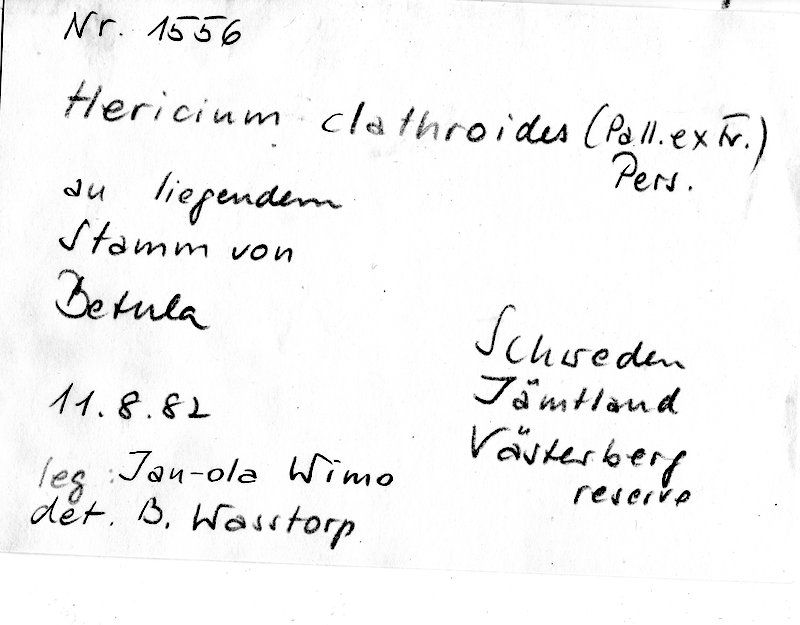 Nr. 1556
Hericium clathroides (Pall. ex Fr.)
Pers.
an liegendem
Stamm von
Betula
Schweden
Jämtland
Västerberg
reserve
11.8.82
leg: Jan-ola Wimo
det. B. Wasstorp